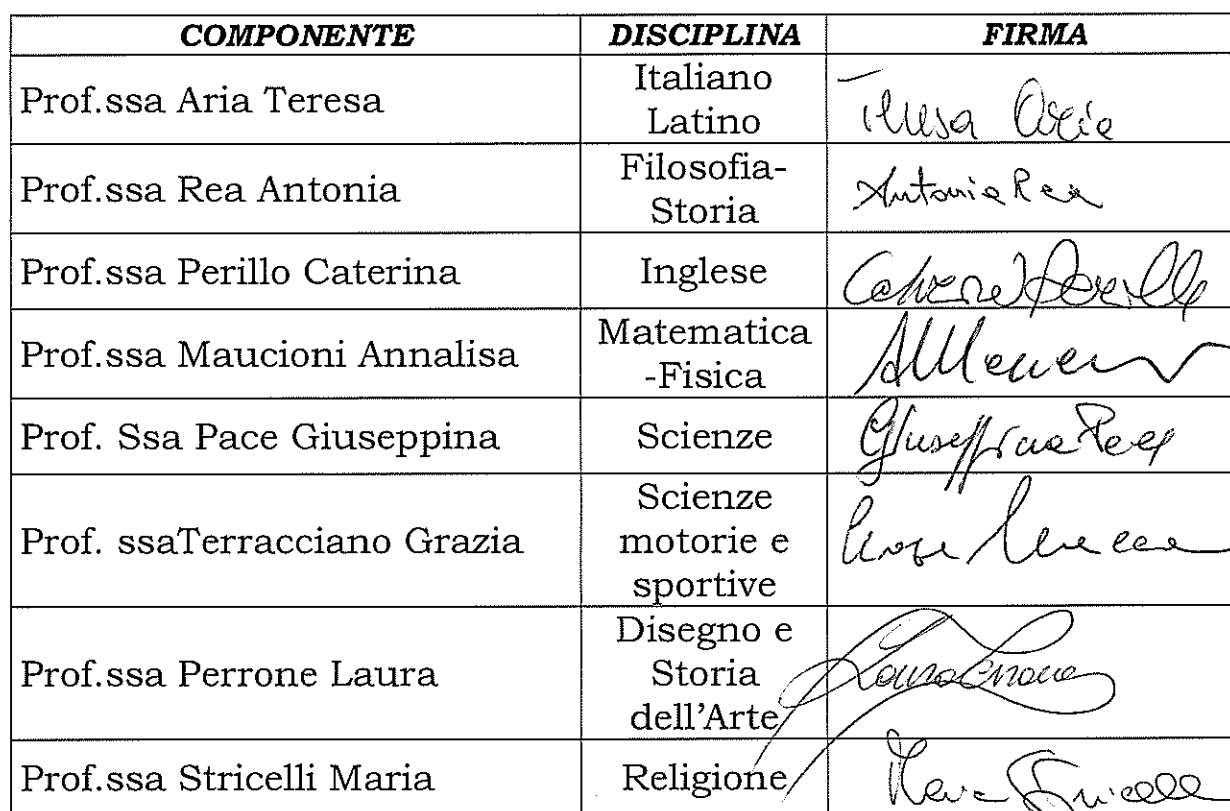 COMPONENTE DISCIPLINA FIRMA
Prof.ssa Aria Teresa
Italiano
Latino
Teresa Aria
Prof.ssa Rea Antonia
Filosofia-
Storia
Antonia Rea
Prof.ssa Perillo Caterina
Inglese
Caterina Perillo
Prof.ssa Maucioni Annalisa
Matematica
-Fisica
Prof. Ssa Pace Giuseppina
Scienze
Giuseppina Pace
Prof. ssaTerracciano Grazia
Scienze
motorie e
sportive
Prof.ssa Perrone Laura
Disegno e
Storia
dell'Arte
Laura Perrone
Prof.ssa Stricelli Maria
Religione
Maria Stricelli